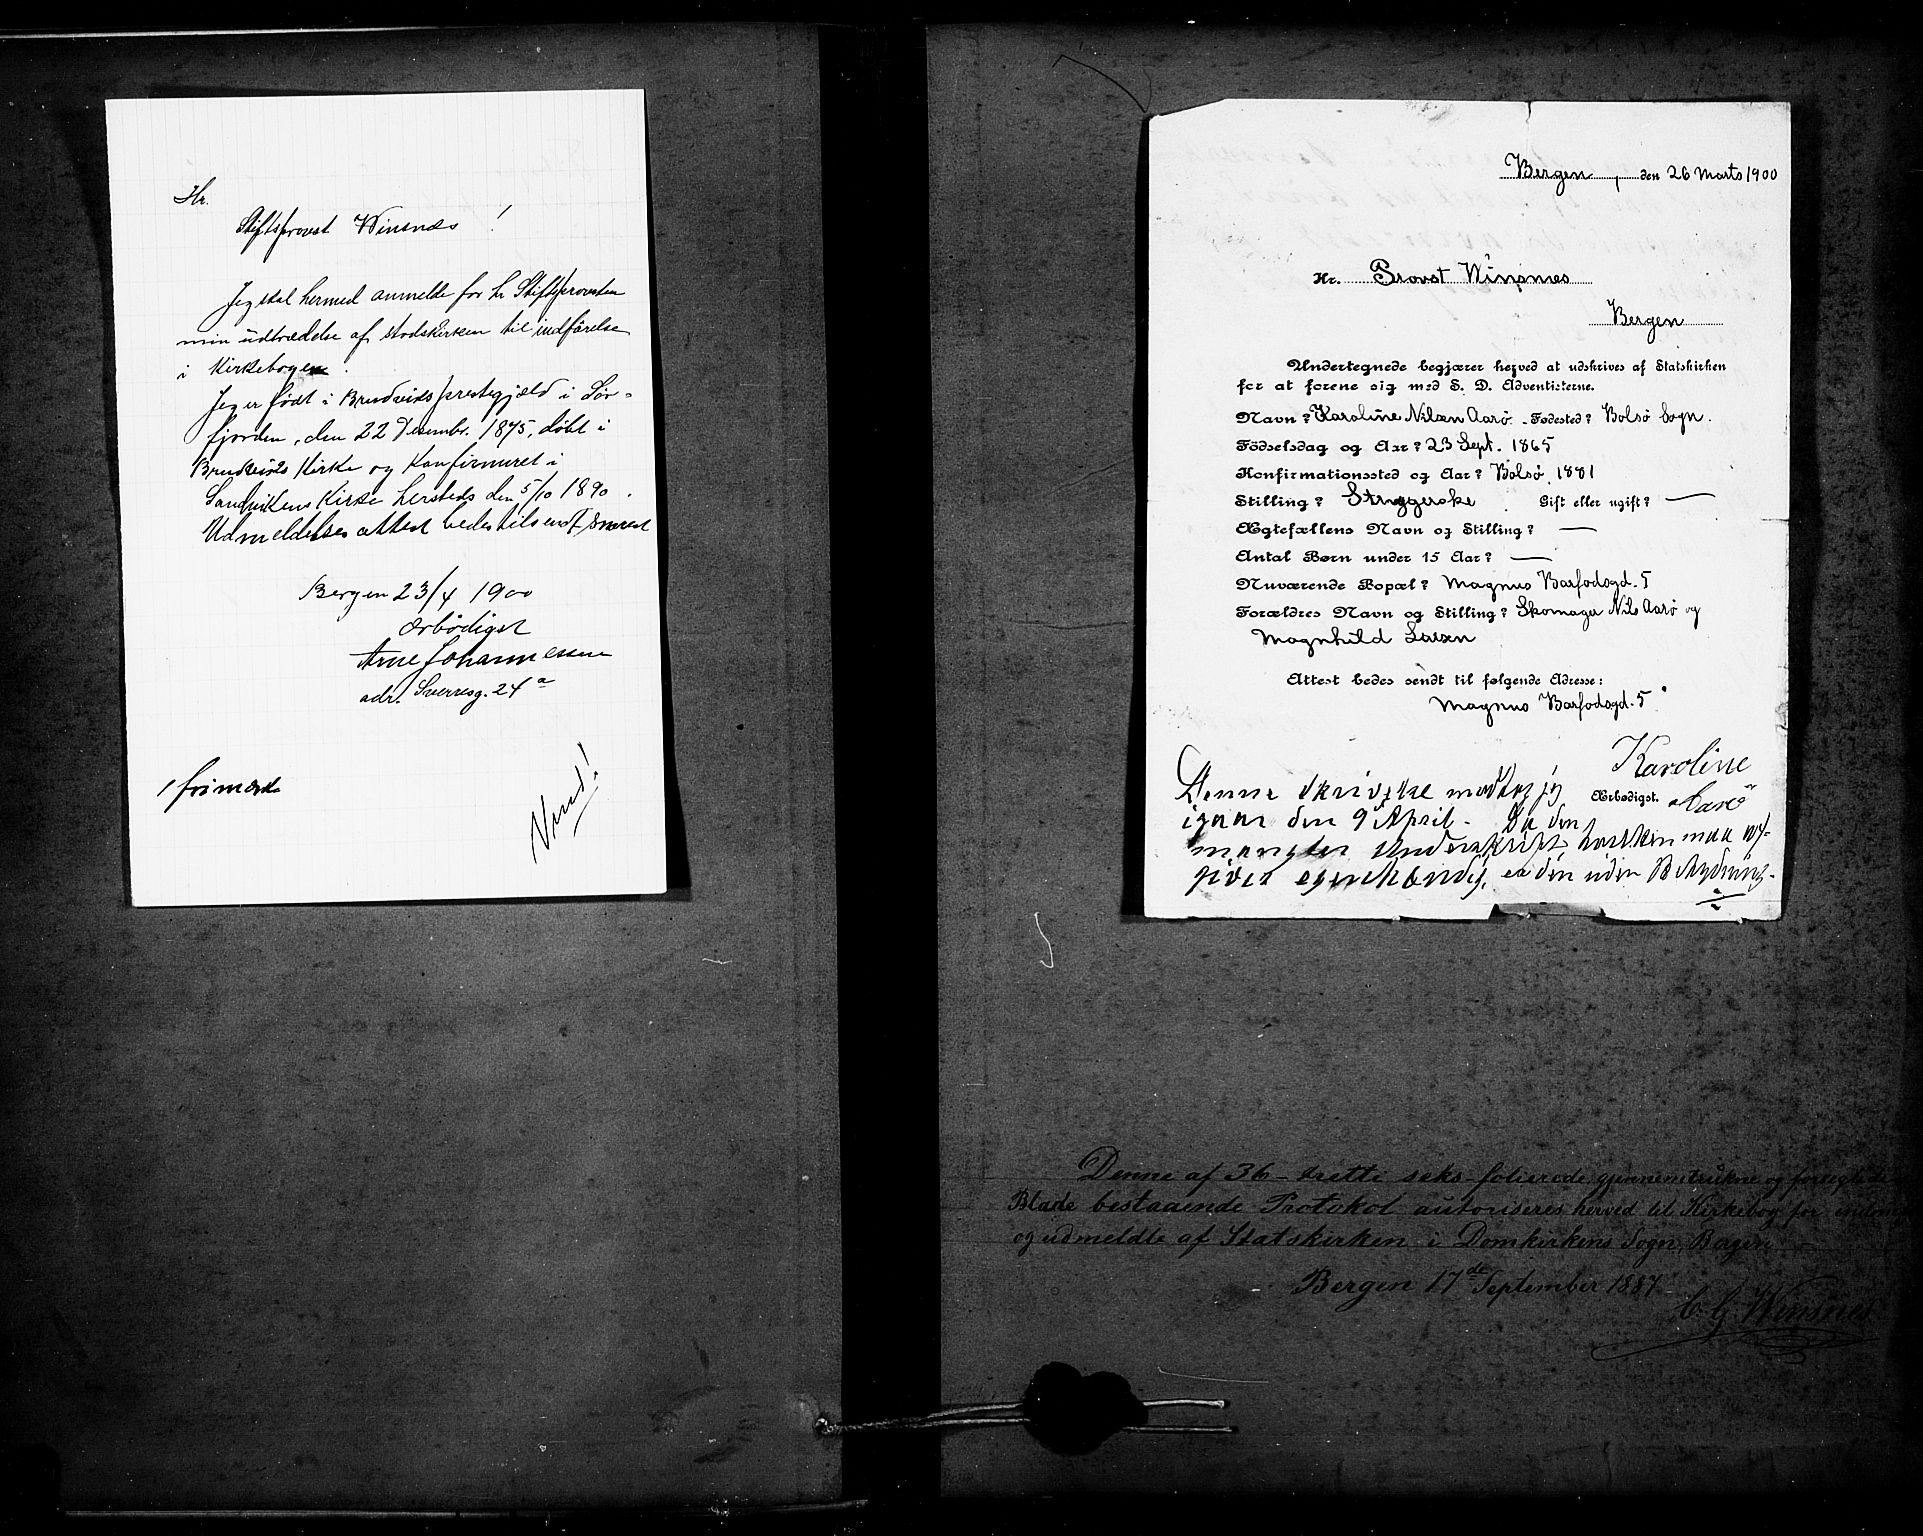 Hr.
Stiftsprovst Winsnæs !
Jeg skal hermed anmelde for hr Stiftsprovsten
min udtrædelse af stadskirken til indførelse
i Kirkebogen.
Jeg er født i Brudviks prestegjæld i Sør-
fjorden, den 22 Desember. 1875, døbt i
Brudviks Kirke og Konfirmeret i
Sandvikens Kirke hersteds den 5/10 1890.
Udmeldelses attest bedes tilsendt snarest
Bergen 23/4 1900
ærbødigst
Arne Johannessen
adr. Sverresg. 24 a
1 frimærke
Vend!
Bergen, den 26 Marts 1900
Hr. Provst Winsnes
Bergen
Undertegnede begjærer herved at udskrives af Statskirken
for at forene sig med S. D. Adventisterne.
Navn? Karoline Nilsen Aarö. Fødested? Bolsö Sogn.
Födselsdag og Aar? 23 Sept. 1865
Konfirmationssted og Aar? Bolsö 1881
Stilling? Strygerske Gift eller ugift? —
Ægtefællens Navn og Stilling? —
Antal Børn under 15 Aar? —
Nuværende Bopæl? Magnus Barfodsgd. 5
Forældres Navn og Stilling? Skomager Nils Aarö og
Magnhild Larsen
Attest bedes sendt til følgende Adresse:
Magnus Barfodsgd. 5
Karoline
Ærbødigst. Aarö
Denne Skrivelse modtog jeg
igaar den 9 April. Da den
mangler Underskrift, hvilken maa af-
gives egenhændig, er den uden Betydning.
Denne af 36 - tretti seks - folierede gjennemtrukne og forseglede
Blade bestaaende Protokol autoriseres herved til Kirkebog for
og udmeldte af Statskirken i Domkirkens Sogn, Bergen
Bergen 17de September 1887
C. G. Winsnes